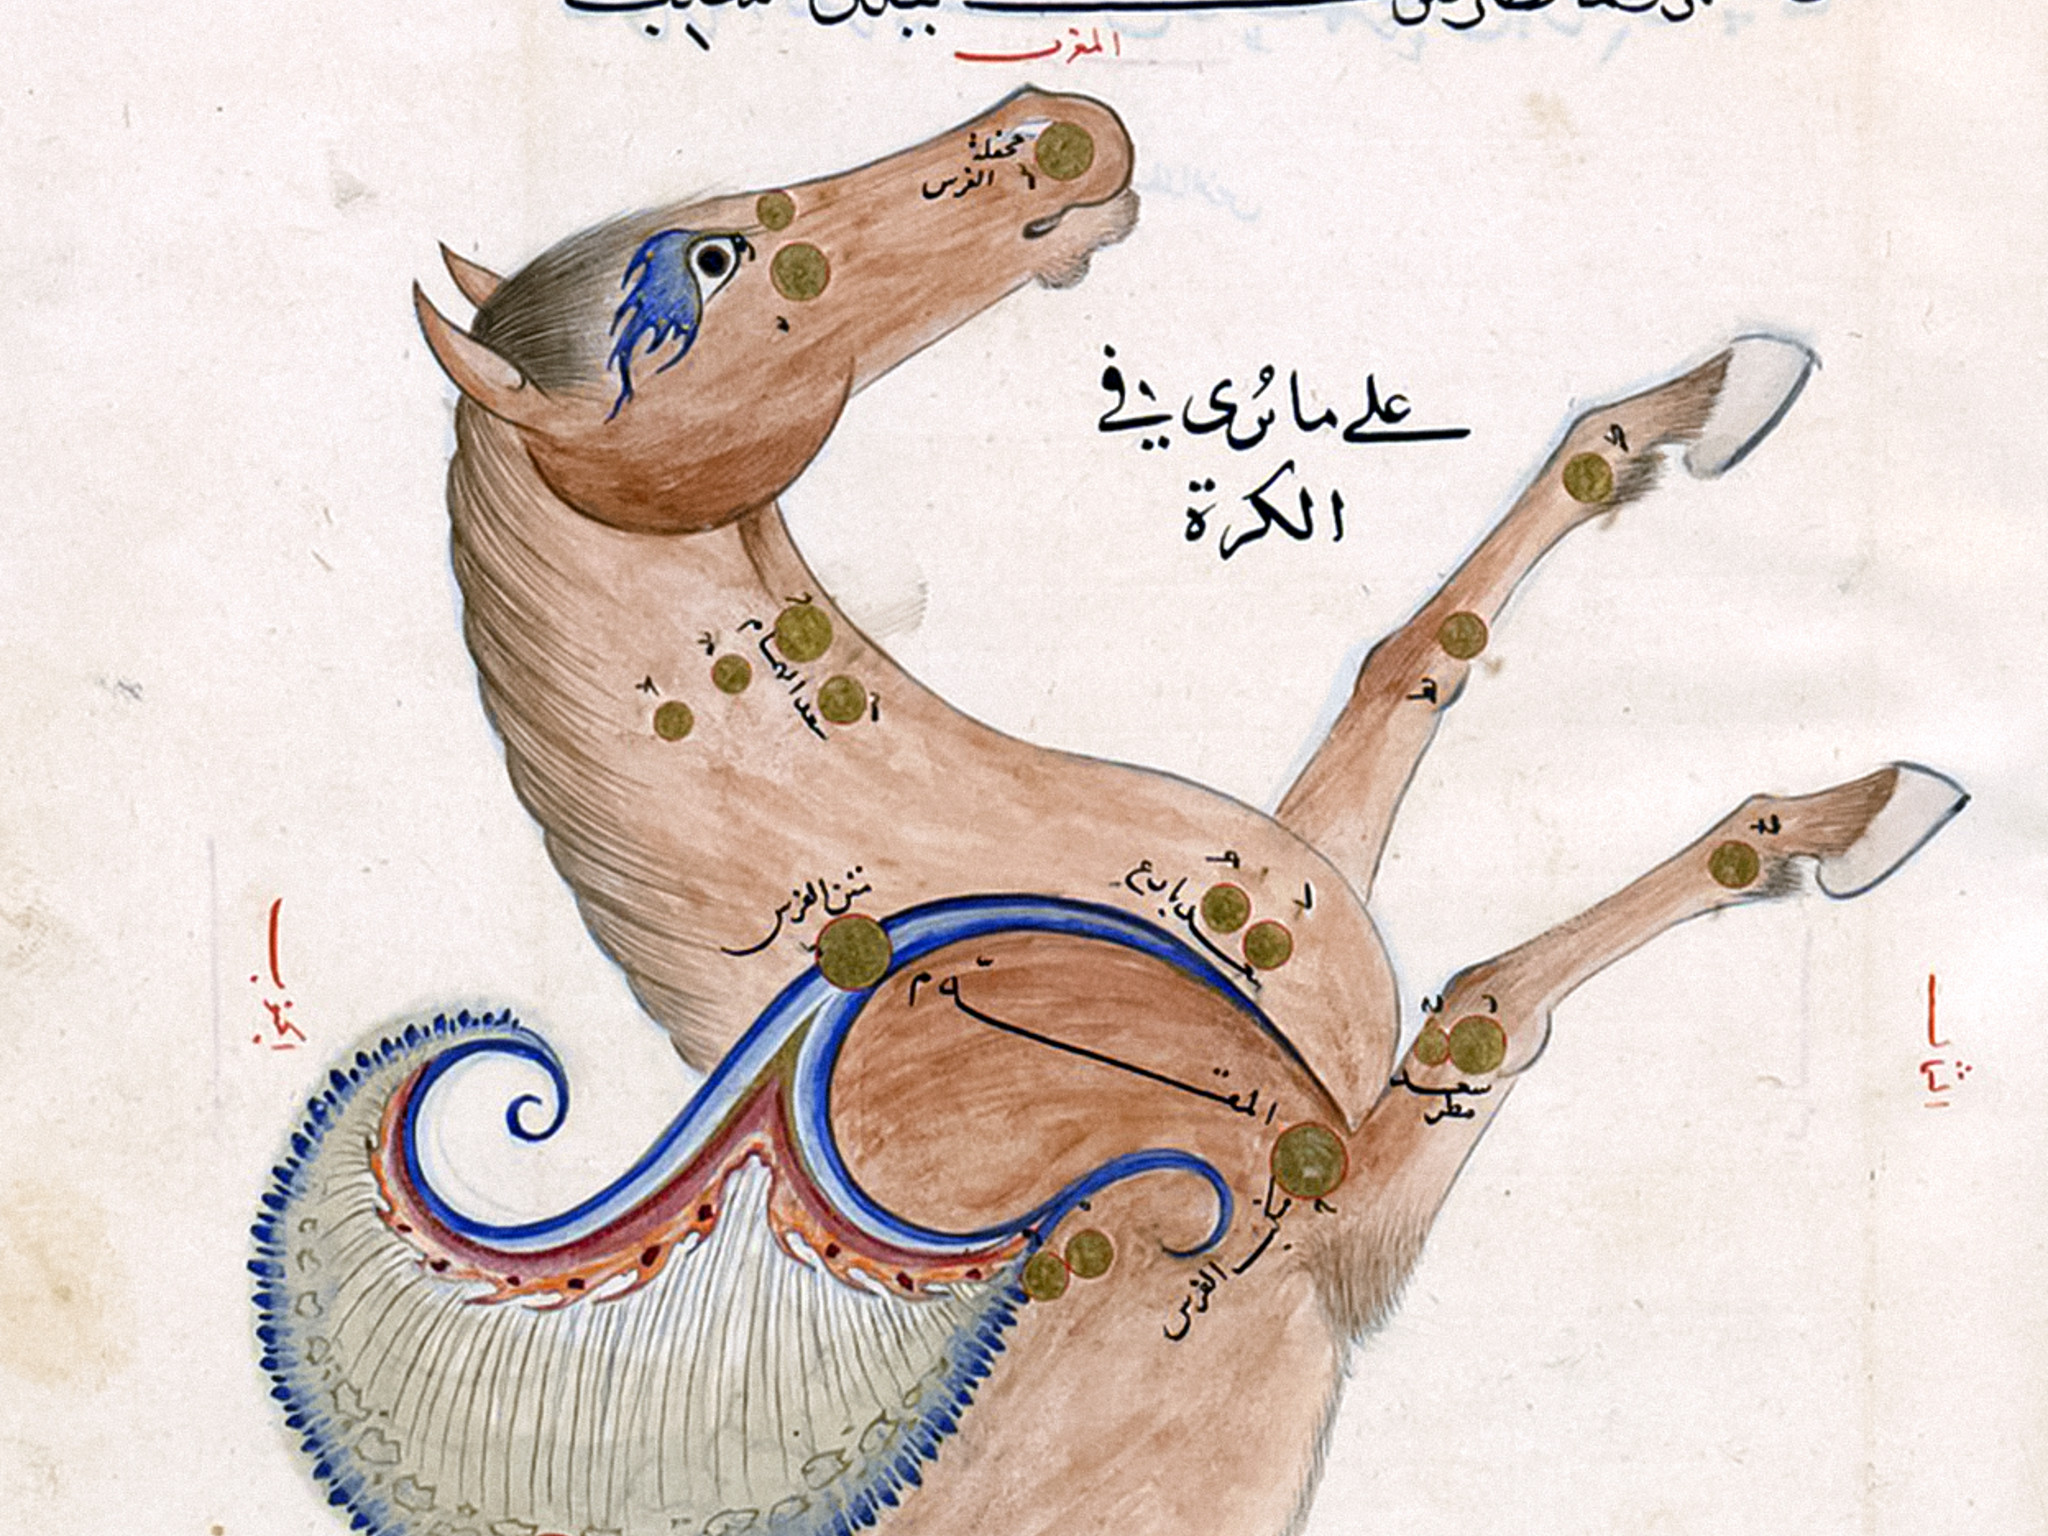 المغرب
جحفلة
الفرس
على ما يُرى في
الكرة
سعد الهمام
متن الفرس
سعد بارع
المقدّم
سعد
مطر
منكب الفرس
الجنوب
الشمال